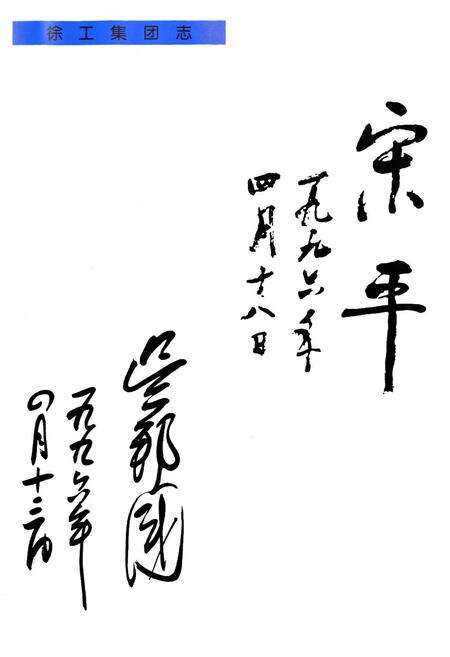 徐工集团志
宋平
一九九六年
四月十八日
吴邦国
一九九六年
四月十二日